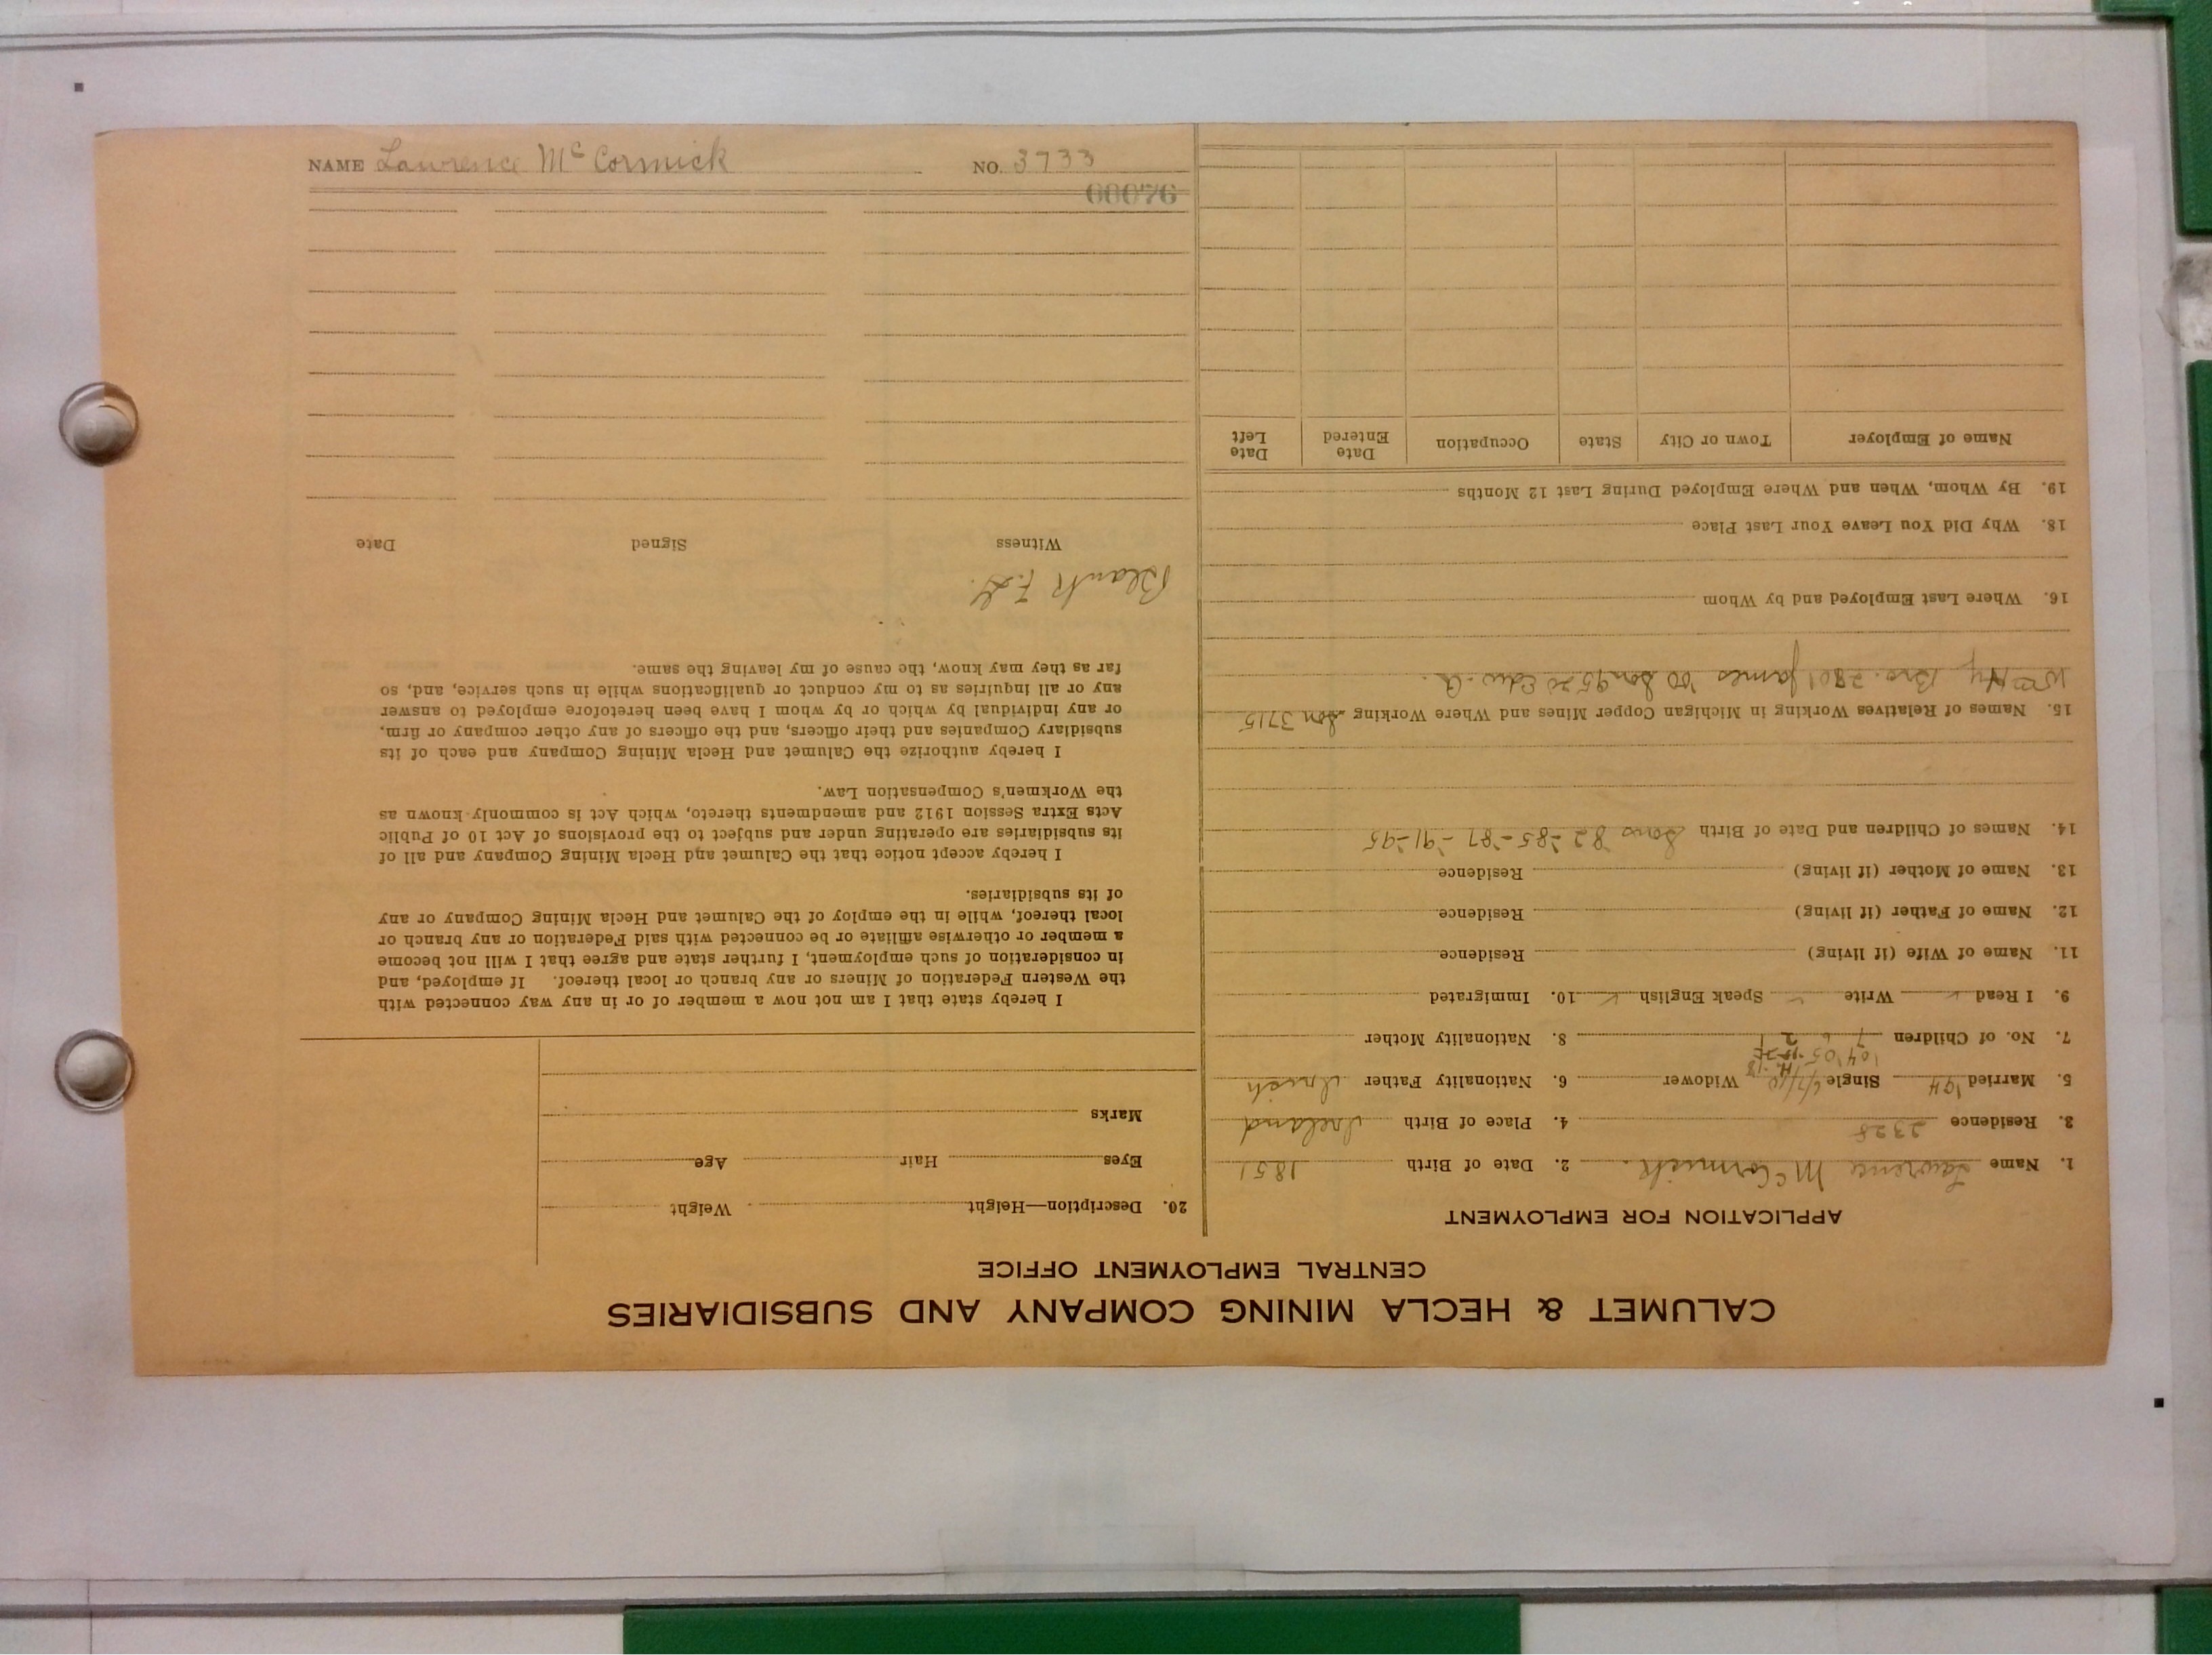 NAME Lawrence McCormick NO. 3733
00076
CALUMET & HECLA MINING COMPANY AND SUBSIDIARIES
CENTRAL EMPLOYMENT OFFICE
APPLICATION FOR EMPLOYMENT
1. Name Lawrence McCormick. 2. Date of Birth 1851
3. Residence 2328 4. Place of Birth Ireland
5. Married '94 Single Widower 6. Nationality Father Irish
'04 '05
7. No. of Children 7 6 2 1 8. Nationality Mother
9. I Read ✓ Write ✓ Speak English ✓ 10. Immigrated
11. Name of Wife (if living) Residence
12. Name of Father (if living) Residence
13. Name of Mother (if living) Residence
14. Names of Children and Date of Birth Sons 82-85-87-91-95
15. Names of Relatives Working in Michigan Copper Mines and Where Working Son 3715
Wm Hy Bro. James '00 Son 9520 Edw. A.
16. Where Last Employed and by Whom
18. Why Did You Leave Your Last Place
19. By Whom, When and Where Employed During Last 12 Months
Name of Employer Town or City State Occupation Date Entered Date Left
20. Description—Height Weight
Eyes Hair Age
Marks
I hereby state that I am not now a member of or in any way connected with
the Western Federation of Miners or any branch or local thereof. If employed, and
in consideration of such employment, I further state and agree that I will not become
a member or otherwise affiliate or be connected with said Federation or any branch or
local thereof, while in the employ of the Calumet and Hecla Mining Company or any
of its subsidiaries.
I hereby accept notice that the Calumet and Hecla Mining Company and all of
its subsidiaries are operating under and subject to the provisions of Act 10 of Public
Acts Extra Session 1912 and amendments thereto, which Act is commonly known as
the Workmen's Compensation Law.
I hereby authorize the Calumet and Hecla Mining Company and each of its
subsidiary Companies and their officers, and the officers of any other company or firm,
or any individual by which or by whom I have been heretofore employed to answer
any or all inquiries as to my conduct or qualifications while in such service, and, so
far as they may know, the cause of my leaving the same.
Blank
Witness Signed Date